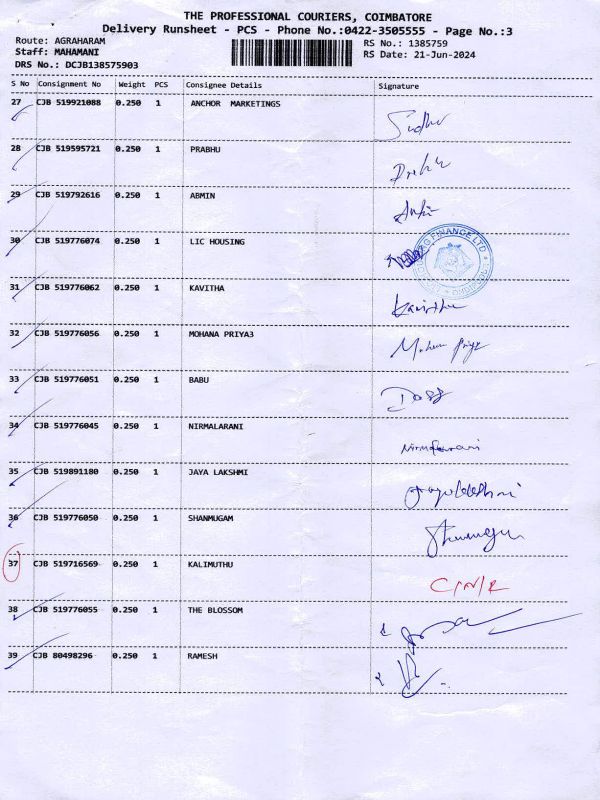 THE PROFESSIONAL COURIERS, COIMBATORE
Delivery Runsheet - PCS - Phone No.:0422-3505555 - Page No.:3
Route: AGRAHARAM RS No.: 1385759
Staff: MAHAMANI RS Date: 21-Jun-2024
DRS No.: DCJB138575903
S No Consignment No Weight PCS Consignee Details Signature
27 CJB 519921088 0.250 1 ANCHOR MARKETINGS Sudhu
28 CJB 519595721 0.250 1 PRABHU
29 CJB 519792616 0.250 1 ABMIN
30 CJB 519776074 0.250 1 LIC HOUSING
31 CJB 519776062 0.250 1 KAVITHA Kavitha
32 CJB 519776056 0.250 1 MOHANA PRIYA3 Mohana Priya
33 CJB 519776051 0.250 1 BABU
34 CJB 519776045 0.250 1 NIRMALARANI Nirmalarani
35 CJB 519891180 0.250 1 JAYA LAKSHMI Jayalakshmi
36 CJB 519776050 0.250 1 SHANMUGAM
37 CJB 519716569 0.250 1 KALIMUTHU C/N/R
38 CJB 519776055 0.250 1 THE BLOSSOM
39 CJB 80498296 0.250 1 RAMESH